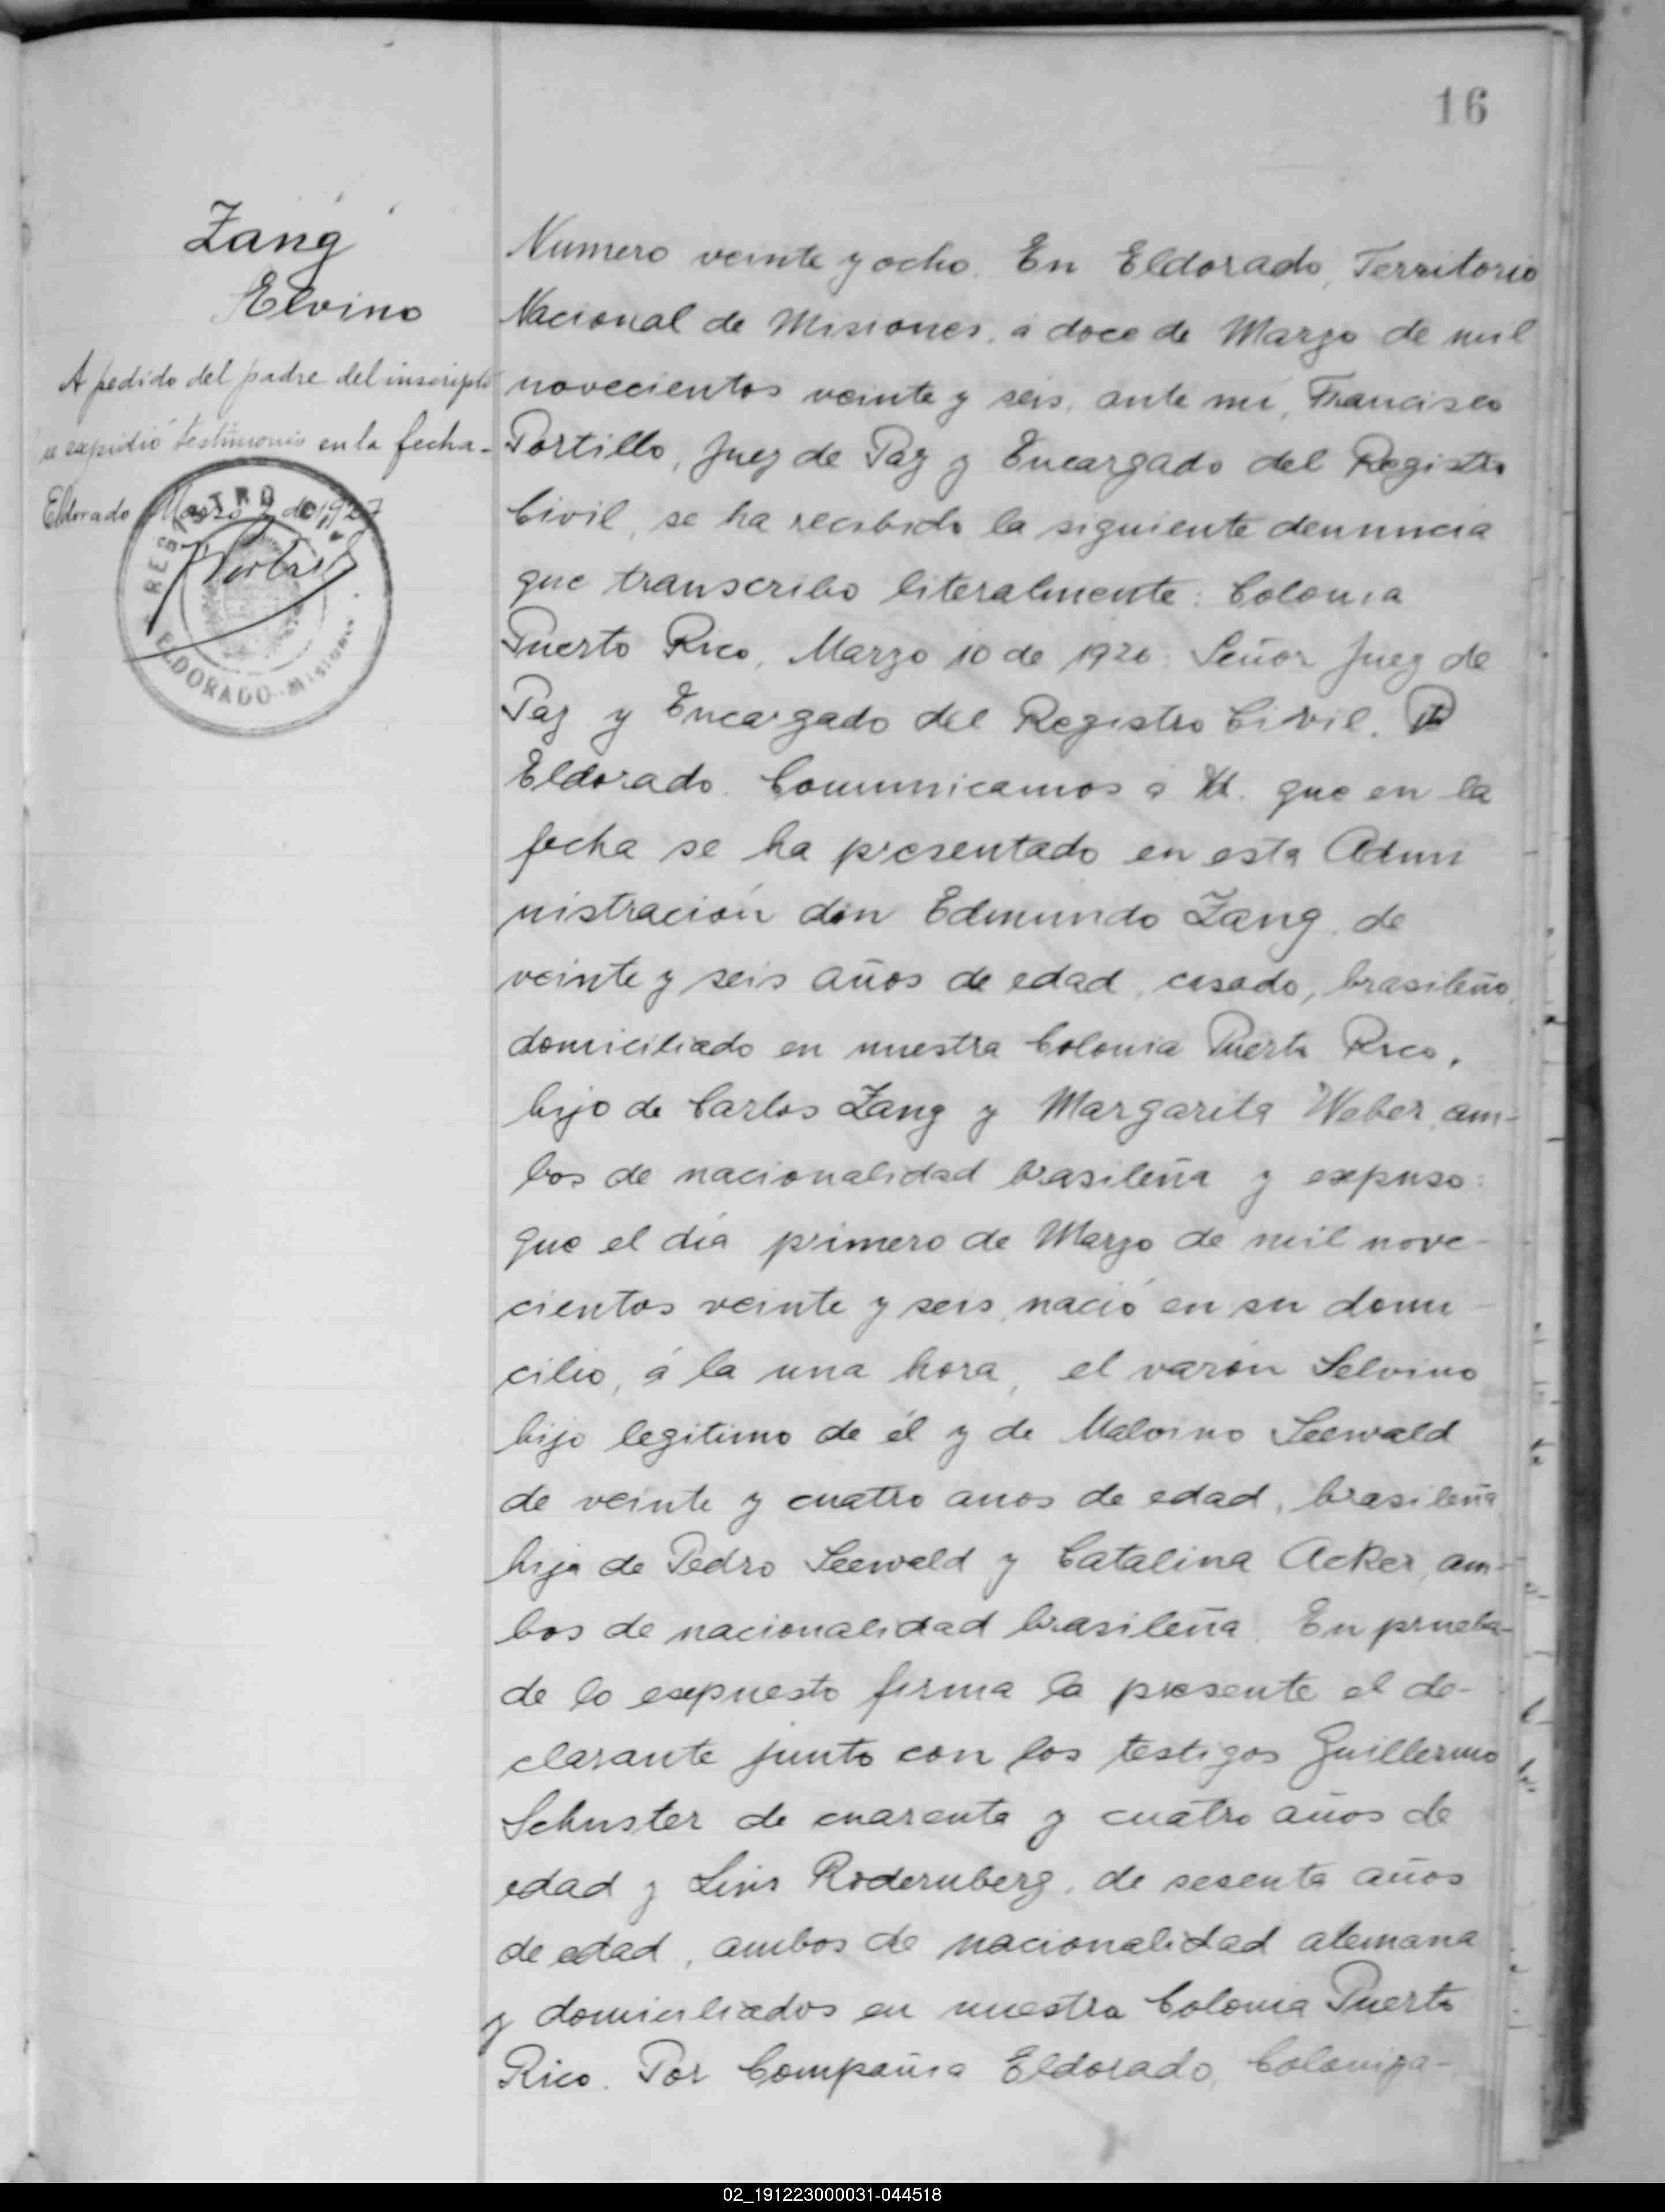 16
Zang
Elvino
A pedido del padre del inscripto
se expidió testimonio en la fecha-
Eldorado Marzo 2 de 1927
REGISTRO
ELDORADO - Misiones
Numero veinte y ocho. En Eldorado, Territorio
Nacional de Misiones, a doce de Marzo de mil
novecientos veinte y seis, ante mi, Francisco
Portillo, Juez de Paz y Encargado del Registro
Civil, se ha recibido la siguiente denuncia
que transcribo literalmente: Colonia
Puerto Rico, Marzo 10 de 1926: Señor Juez de
Paz y Encargado del Registro Civil.
Eldorado. Comunicamos á Vd. que en la
fecha se ha presentado en esta Admi
nistración don Edmundo Zang, de
veinte y seis años de edad, casado, brasileño,
domiciliado en nuestra Colonia Puerto Rico,
hijo de Carlos Zang y Margarita Weber, am-
bos de nacionalidad brasileña y expuso:
que el día primero de Marzo de mil nove-
cientos veinte y seis, nació en su domi-
cilio, á la una hora, el varón Selvino
hijo legitimo de él y de Malvino Seewald
de veinte y cuatro anos de edad, brasileña
hija de Pedro Seewald y Catalina Acker, am-
bos de nacionalidad brasileña. En prueba-
de lo expuesto firma la presente el de-
clarante junto con los testigos Guillermo
Schuster de cuarenta y cuatro años de
edad y Luis Rodernberg, de sesenta años
de edad, ambos de nacionalidad alemana
y domiciliados en nuestra Colonia Puerto
Rico. Por Compañia Eldorado, Coloniza-
02_191223000031-044518